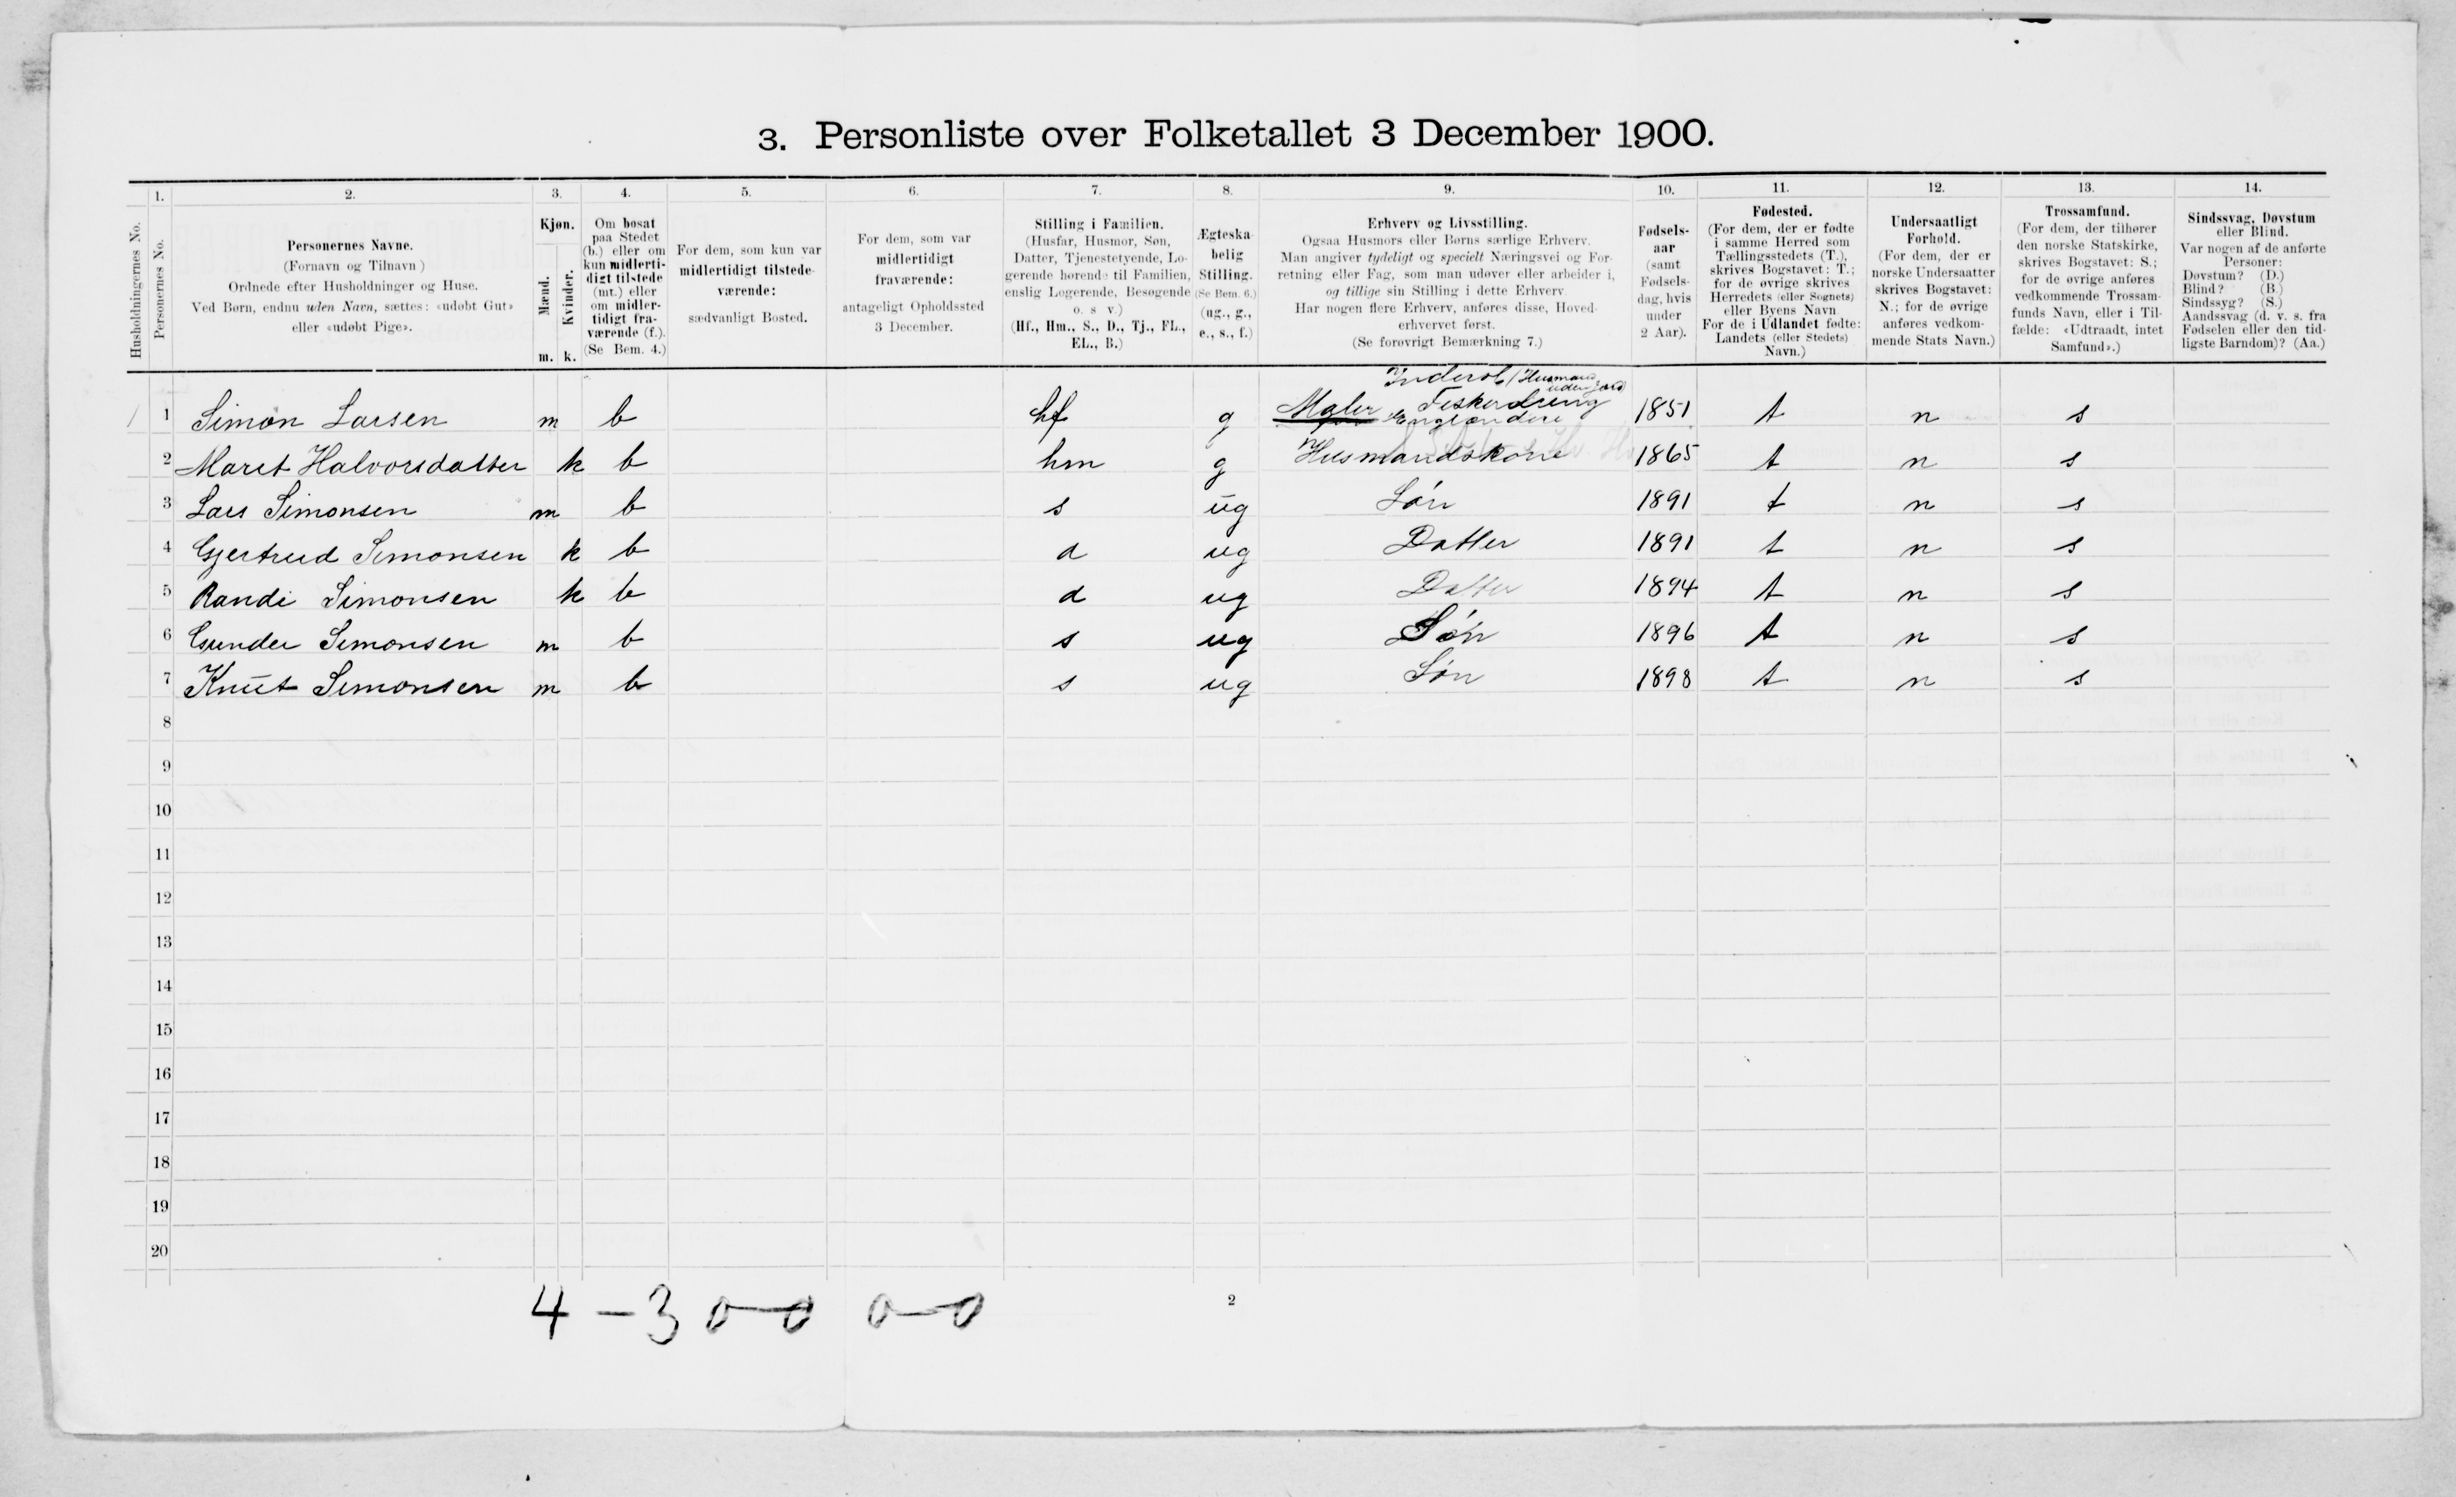 3. Personliste over Folketallet 3 December 1900.
Husholdningernes No.
1. Personernes No.
2. Personernes Navne.
(Fornavn og Tilnavn)
Ordnede efter Husholdninger og Huse.
Ved Børn, endnu uden Navn, sættes: «udøbt Gut»
eller «udøbt Pige».
3. Kjøn.
Mænd. Kvinder.
m. k.
4. Om bosat
paa Stedet
(b.) eller om
kun midlerti-
digt tilstede
(mt.) eller
om midler-
tidigt fra-
værende (f.).
(Se Bem. 4.)
5. For dem, som kun var
midlertidigt tilstede-
værende:
sædvanligt Bosted.
6. For dem, som var
midlertidigt
fraværende:
antageligt Opholdssted
3 December.
7. Stilling i Familien.
(Husfar, Husmor, Søn,
Datter, Tjenestetyende, Lo-
gerende hørende til Familien,
enslig Logerende, Besøgende
o. s v.)
(Hf., Hm., S., D., Tj., FL.,
EL., B.)
8. Ægteska-
belig
Stilling.
(Se Bem. 6.)
(ug., g.,
e., s., f.)
9. Erhverv og Livsstilling.
Ogsaa Husmors eller Børns særlige Erhverv.
Man angiver tydeligt og specielt Næringsvei og For-
retning eller Fag, som man udøver eller arbeider i,
og tillige sin Stilling i dette Erhverv
Har nogen flere Erhverv, anføres disse, Hoved-
erhvervet først.
(Se forøvrigt Bemærkning 7.)
10. Fødsels-
aar
(samt
Fødsels-
dag, hvis
under
2 Aar).
11. Fødested.
(For dem, der er fødte
i samme Herred som
Tællingsstedets (T.),
skrives Bogstavet: T.;
for de øvrige skrives
Herredets (eller Sognets)
eller Byens Navn
For de i Udlandet fødte:
Landets (eller Stedets)
Navn.)
12. Undersaatligt
Forhold.
(For dem, der er
norske Undersaatter
skrives Bogstavet:
N.; for de øvrige
anføres vedkom-
mende Stats Navn.)
13. Trossamfund.
(For dem, der tilhører
den norske Statskirke,
skrives Bogstavet: S.;
for de øvrige anføres
vedkommende Trossam-
funds Navn, eller i Til-
fælde: «Udtraadt, intet
Samfund».)
14. Sindssvag, Døvstum
eller Blind.
Var nogen af de anførte
Personer:
Døvstum? (D.)
Blind? (B.)
Sindssyg? (S.)
Aandssvag (d. v. s. fra
Fødselen eller den tid-
ligste Barndom)? (Aa.)
Husmand
uden Jord
1 Simon Larsen m b hf g Maler Fiskerdreng 1851 t n s
2 Maret Halvorsdatter k b hm g Husmandskone 1865 t n s
3 Lars Simonsen m b s ug Søn 1891 t n s
4 Gjertrud Simonsen k b d ug Datter 1891 t n s
5 Randi Simonsen k b d ug Datter 1894 t n s
6 Gunder Simonsen m b s ug Søn 1896 t n s
7 Knut Simonsen m b s ug Søn 1898 t n s
8
9
10
11
12
13
14
15
16
17
18
19
20
4 - 3 0-0 0-0
2